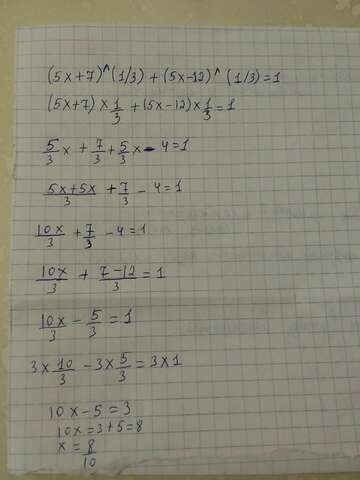 (5x+7)^(1/3) + (5x-12)^(1/3)=1
(5x+7)×1/3 + (5x-12)×1/3=1
5/3x + 7/3 + 5/3x - 4=1
5x+5x/3 + 7/3 - 4=1
10x/3 + 7/3 - 4=1
10x/3 + 7-12/3 = 1
10x/3 - 5/3 = 1
3×10/3 - 3×5/3 = 3×1
10x-5=3
10x=3+5=8
x=8/10